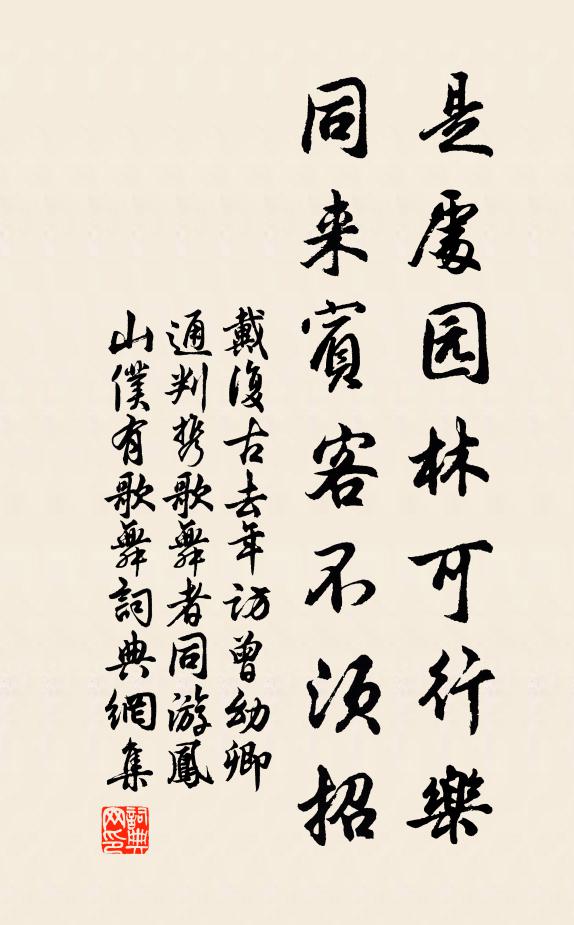 是處园林可行樂
同来賓客不須招
戴復古去年訪曾幼卿
通判携歌舞者同游鳳
山僕有歌舞詞典網集
詞典网印